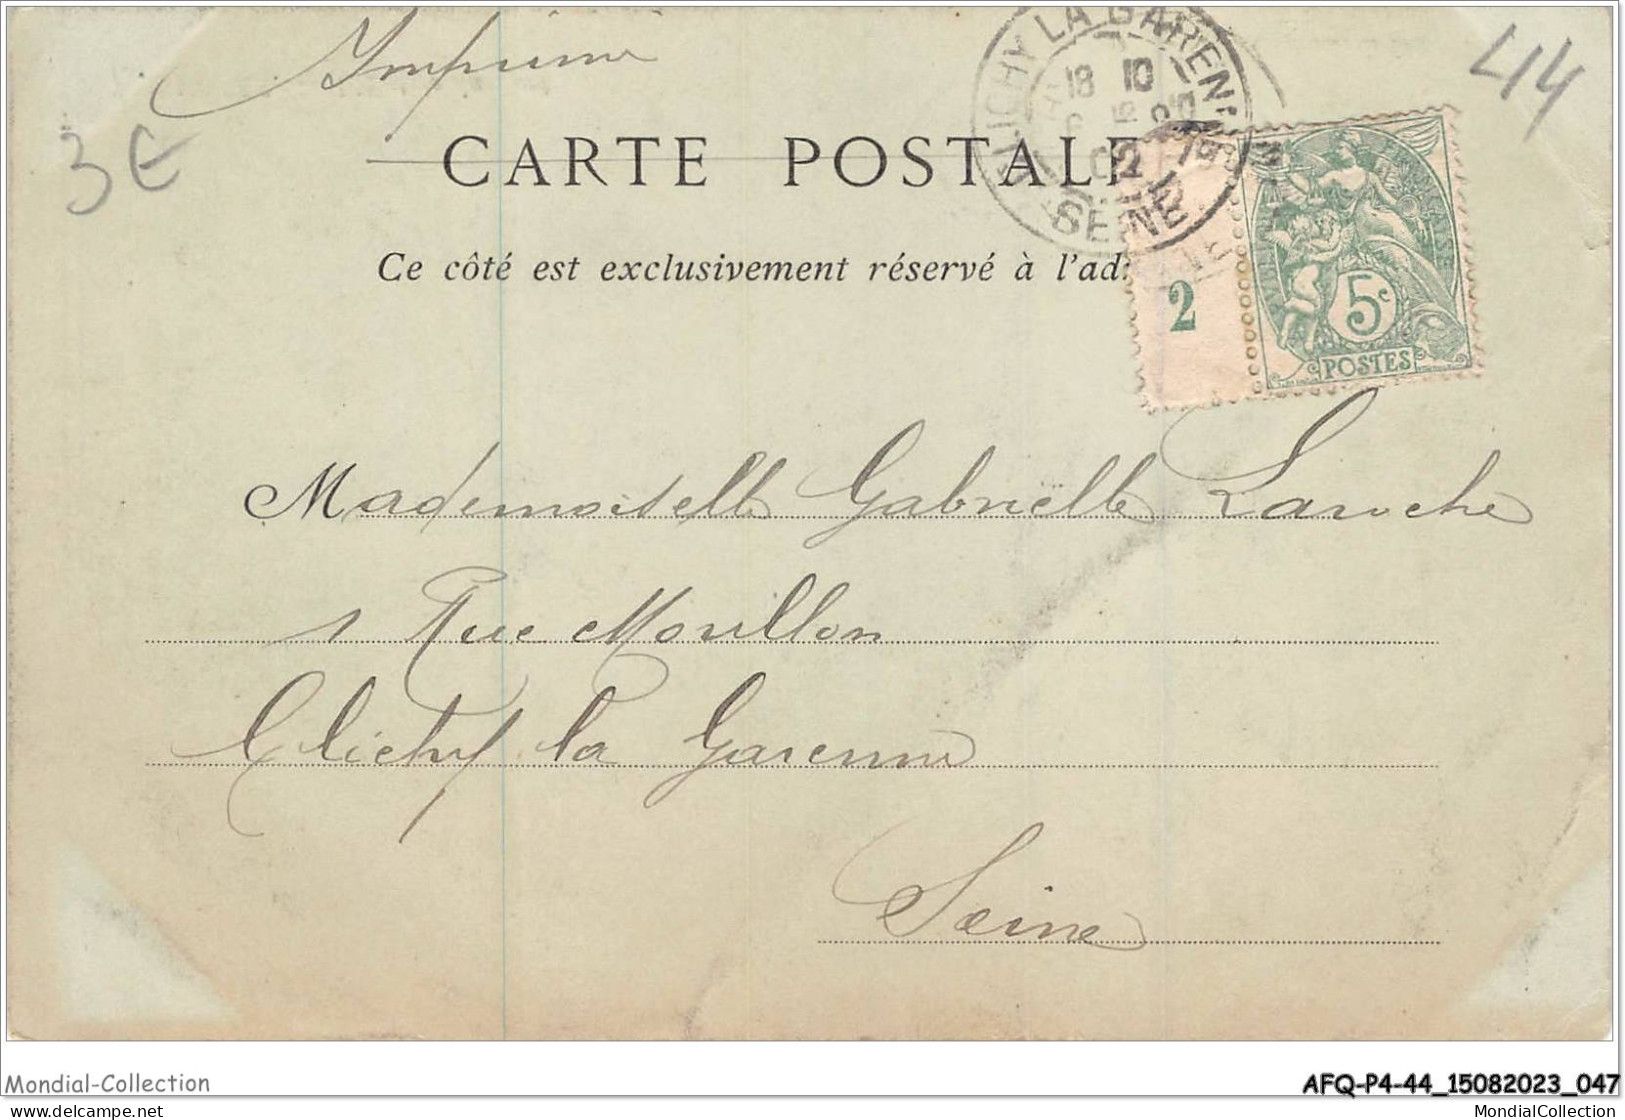 Imprimé
CLICHY LA GARENNE
18 10
02
SEINE
44
3€
CARTE POSTALE
Ce côté est exclusivement réservé à l'ad
2
5c
POSTES
Mademoiselle Gabrielle Laroche
1 Rue Morillon
Clichy la Garenne
Seine
Mondial-Collection
AFQ-P4-44_15082023_047
delcampe.net
MondialCollection